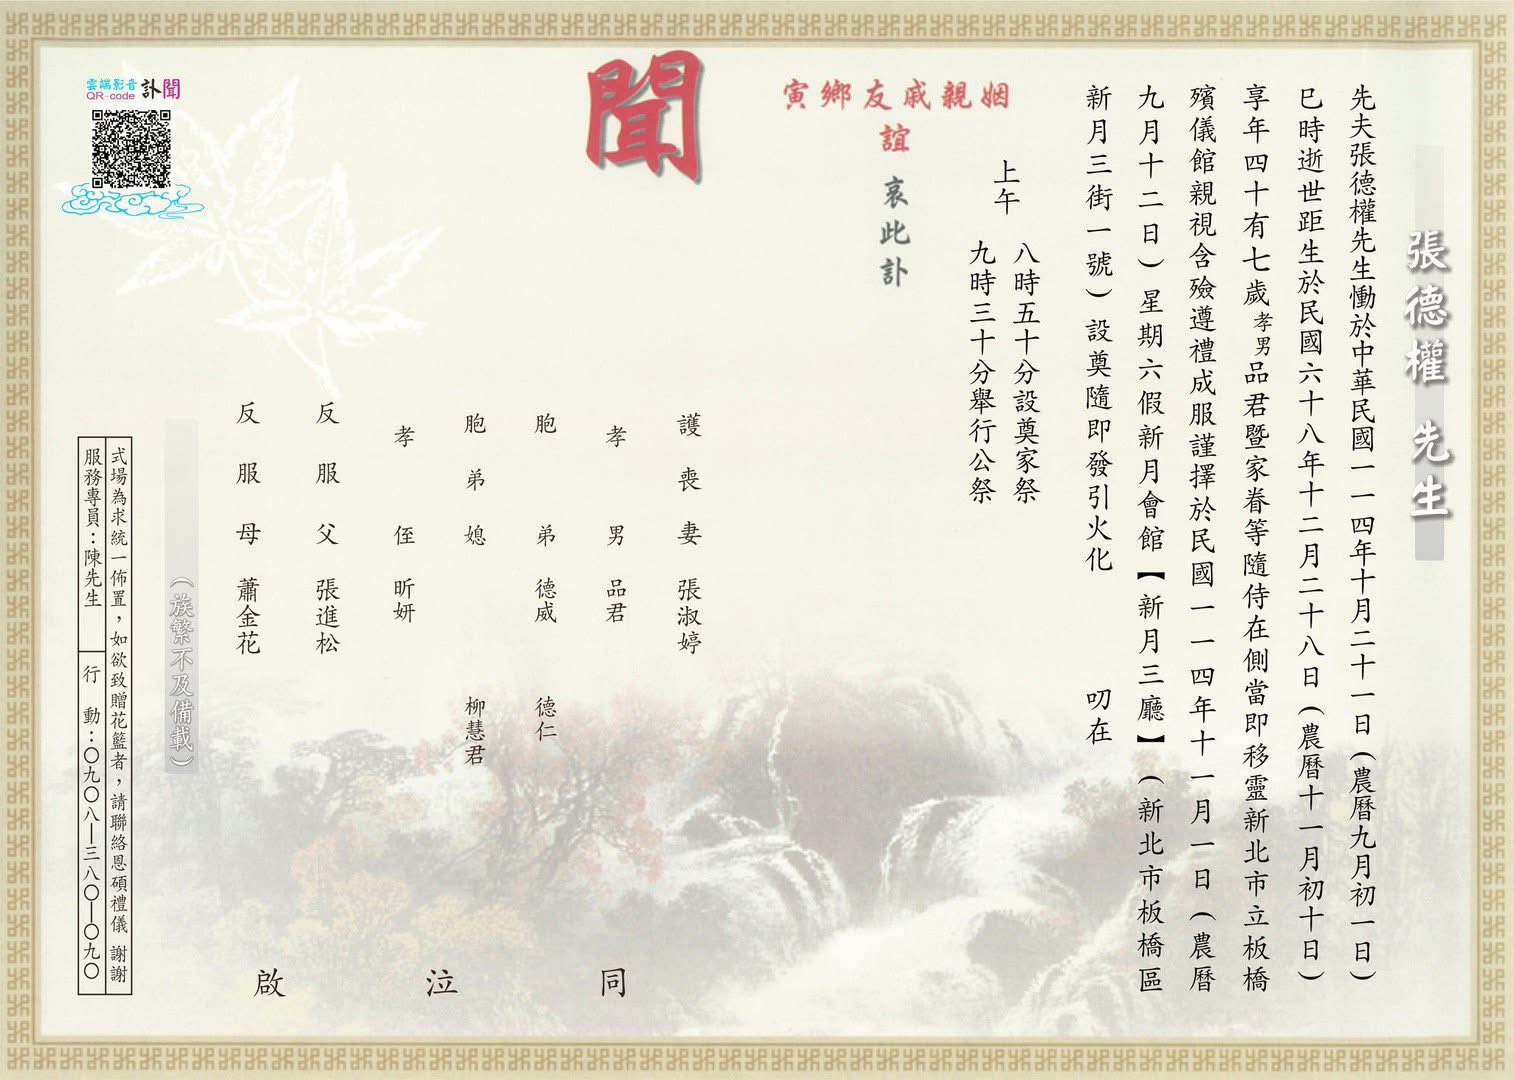 張德權 先生
先夫張德權先生慟於中華民國一一四年十月二十一日(農曆九月初一日)
巳時逝世距生於民國六十八年十二月二十八日(農曆十一月初十日)
享年四十有七歲孝男品君暨家眷等隨侍在側當即移靈新北市立板橋
殯儀館親視含殮遵禮成服謹擇於民國一一四年十一月一日(農曆
九月十二日)星期六假新月會館【新月三廳】(新北市板橋區
新月三街一號)設奠隨即發引火化 叨在
上午 八時五十分設奠家祭
九時三十分舉行公祭
姻親戚友鄉寅
誼 哀此訃
聞
護喪妻 張淑婷
孝男 品君
胞弟 德威 德仁
胞弟媳 柳慧君
孝侄 昕妍
反服父 張進松
反服母 蕭金花
同
泣
啟
(族繁不及備載)
式場為求統一佈置，如欲致贈花籃者，請聯絡恩碩禮儀 謝謝
服務專員：陳先生 行 動：〇九〇八—三八〇—〇九〇
雲端影音
QR-code
訃聞